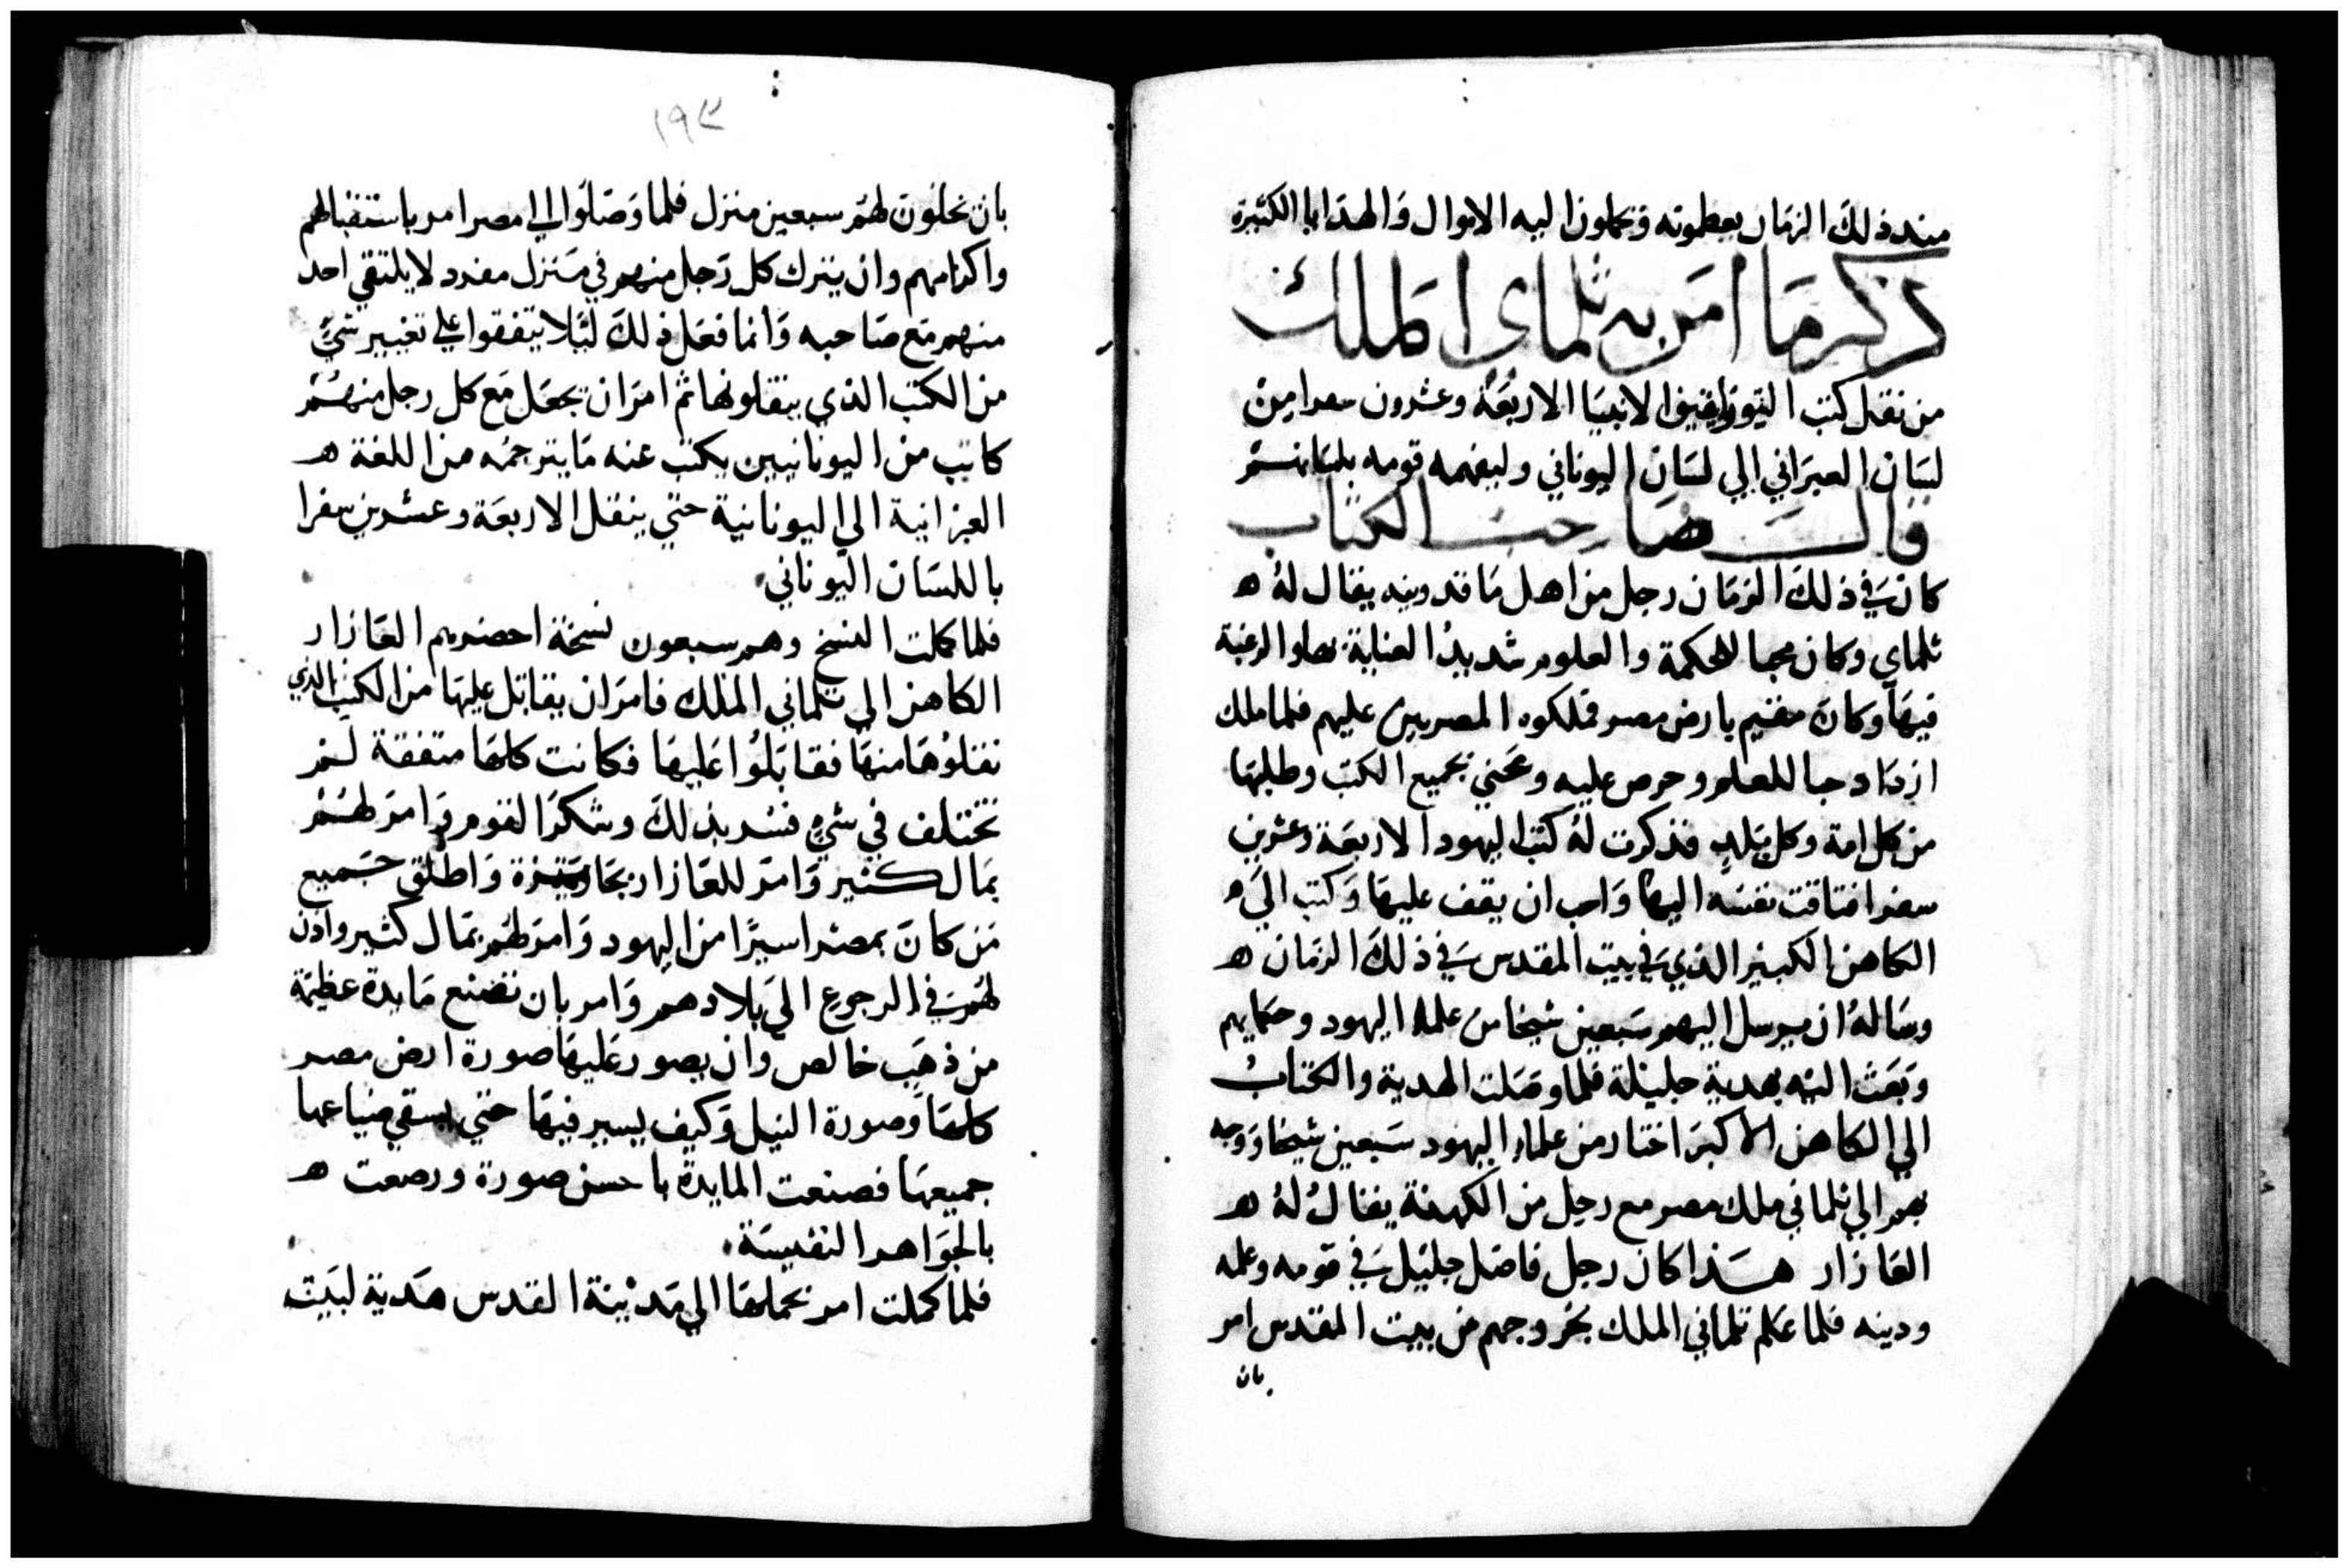 منذ ذلك الزمان يعظمونه ويحملون اليه الاموال والهدايا الكثيرة
ذكر ما امر به تلماي الملك
من نقل كتب التوراة الانبيا الاربعة وعشرون سفرا من
لسان العبراني الي لسان اليوناني وليفهمه قومه بلسانهم
قال صاحب الكتاب
كان في ذلك الزمان رجل من اهل ماقدونيه يقال له ه
تلماي وكان محبا للحكمة والعلوم شديد العناية بها والرغبة
فيها وكان مقيم بارض مصر فملكوه المصريين عليهم فلما ملك
ازداد حبا للعلم وحرص عليه وعني بجميع الكتب وطلبها
من كل امة وكل بلد فذكرت له كتب اليهود الاربعة وعشرين
سفرا فتاقت نفسه اليها واحب ان يقف عليها وكتب الي ه
الكاهن الكبير الذي في بيت المقدس في ذلك الزمان ه
وساله ان يرسل اليهم سبعين شيخا من علما اليهود وحكمايهم
وبعث اليه بهدية جليلة فلما وصلت الهدية والكتاب
الي الكاهن الاكبر اختار من علماء اليهود سبعين شيخا ووجه
بهم الي تلماني ملك مصر مع رجل من الكهنة يقال له ه
العازار هذا كان رجل فاضل جليل في قومه وعلمه
ودينه فلما علم تلماني الملك بخروجهم من بيت المقدس امر
بان
١٩٣
بان يخلون لهم سبعين منزل فلما وصلوا الي مصر امر باستقبالهم
واكرامهم وان يترك كل رجل منهم في منزل مفرد لا يلتقي احد
منهم مع صاحبه وانما فعل ذلك ليلا يتفقوا علي تغيير شي
من الكتب الذي ينقلونها ثم امر ان يجعل مع كل رجل منهم
كاتب من اليونانيين يكتب عنه ما يترجمه من اللغة ه
العبرانية الي اليونانية حتي ينقل الاربعة وعشرين سفرا
باللسان اليوناني
فلما كملت النسخ وهم سبعون نسخة احضرهم العازار
الكاهن الي تلماني الملك فامر ان يقابل عليها من الكتب الذي
نقلوها منها فقابلوا عليها فكانت كلها متفقة لم
تختلف في شي فسر بذلك وشكر القوم وامر لهم
بمال كثير وامر للعازار بجايزة واطلق جميع
من كان بمصر اسيرا من اليهود وامر لهم بمال كثير واذن
لهم في الرجوع الي بلادهم وامر بان تصنع مايدة عظيمة
من ذهب خالص وان يصور عليها صورة ارض مصر
كلها وصورة النيل وكيف يسير فيها حتي يسقي ضياعها
جميعها فصنعت المايدة باحسن صورة ورصعت ه
بالجواهر النفيسة
فلما كملت امر بحملها الي مدينة القدس هدية لبيت